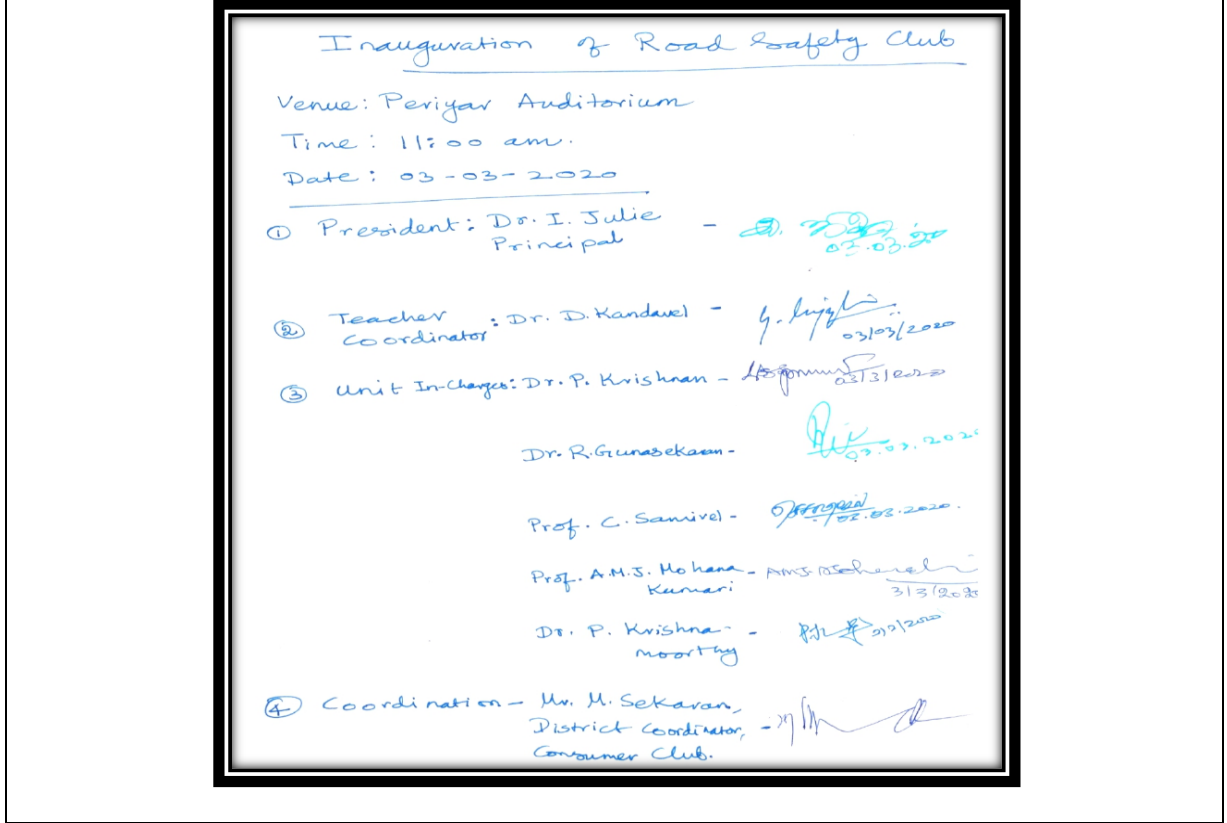 Inauguration of Road Safety Club
Venue: Periyar Auditorium
Time: 11:00 am.
Date: 03-03-2020
① President: Dr. I. Julie -
Principal
03.03.20
② Teacher : Dr. D. Kandavel -
Coordinator
03/03/2020
③ Unit In-Charges: Dr. P. Krishnan -
03/3/2020
Dr. R. Gunasekaran -
03.03.2020
Prof. C. Samivel -
03.03.2020.
Prof. A.M.J. Mohana -
Kumari
3/3/2020
Dr. P. Krishna- -
moorthy
④ Coordination - Mr. M. Sekaran,
District Coordinator, -
Consumer Club.